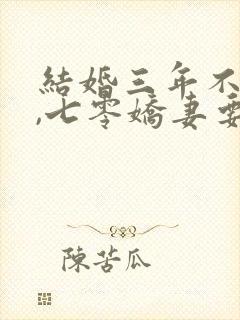 結婚三年不
,七零嬌妻要
陳苦瓜